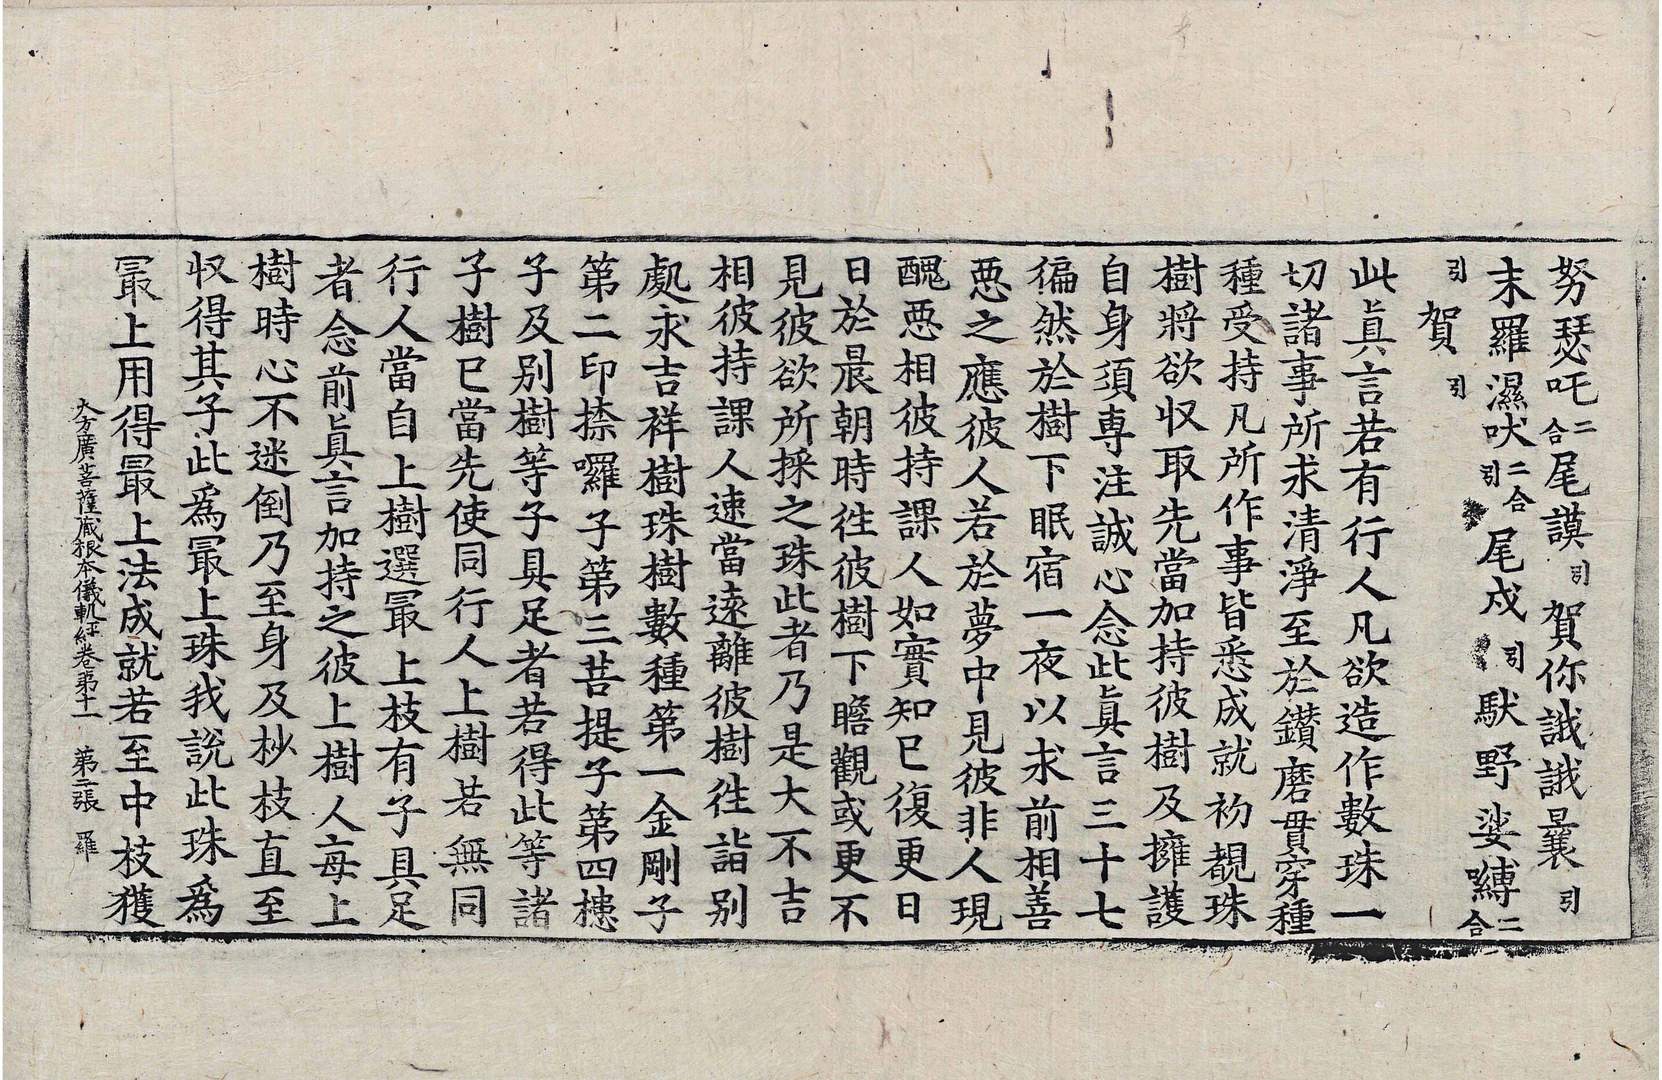 努瑟吒二合尾謨引賀你誐誐曩引
末羅濕吠二合引尾戍引馱野娑嚩二合
引賀引
此眞言若有行人凡欲造作數珠一
切諸事所求清淨至於鑽磨貫穿種
種受持凡所作事皆悉成就初覩珠
樹將欲収取先當加持彼樹及擁護
自身須專注誠心念此眞言三十七
徧然於樹下眠宿一夜以求前相善
惡之應彼人若於夢中見彼非人現
醜惡相彼持課人如實知已復更日
日於晨朝時徃彼樹下瞻觀或更不
見彼欲所採之珠此者乃是大不吉
相彼持課人速當遠離彼樹徃詣別
處求吉祥樹珠樹數種第一金剛子
第二印捺囉子第三菩提子第四槵
子及別樹等子具足者若得此等諸
子樹已當先使同行人上樹若無同
行人當自上樹選最上枝有子具足
者念前眞言加持之彼上樹人毎上
樹時心不迷倒乃至身及杪枝直至
収得其子此爲最上珠我說此珠爲
最上用得最上法成就若至中枝獲
大方廣菩薩藏根本儀軌經卷第十一 第二張 羅